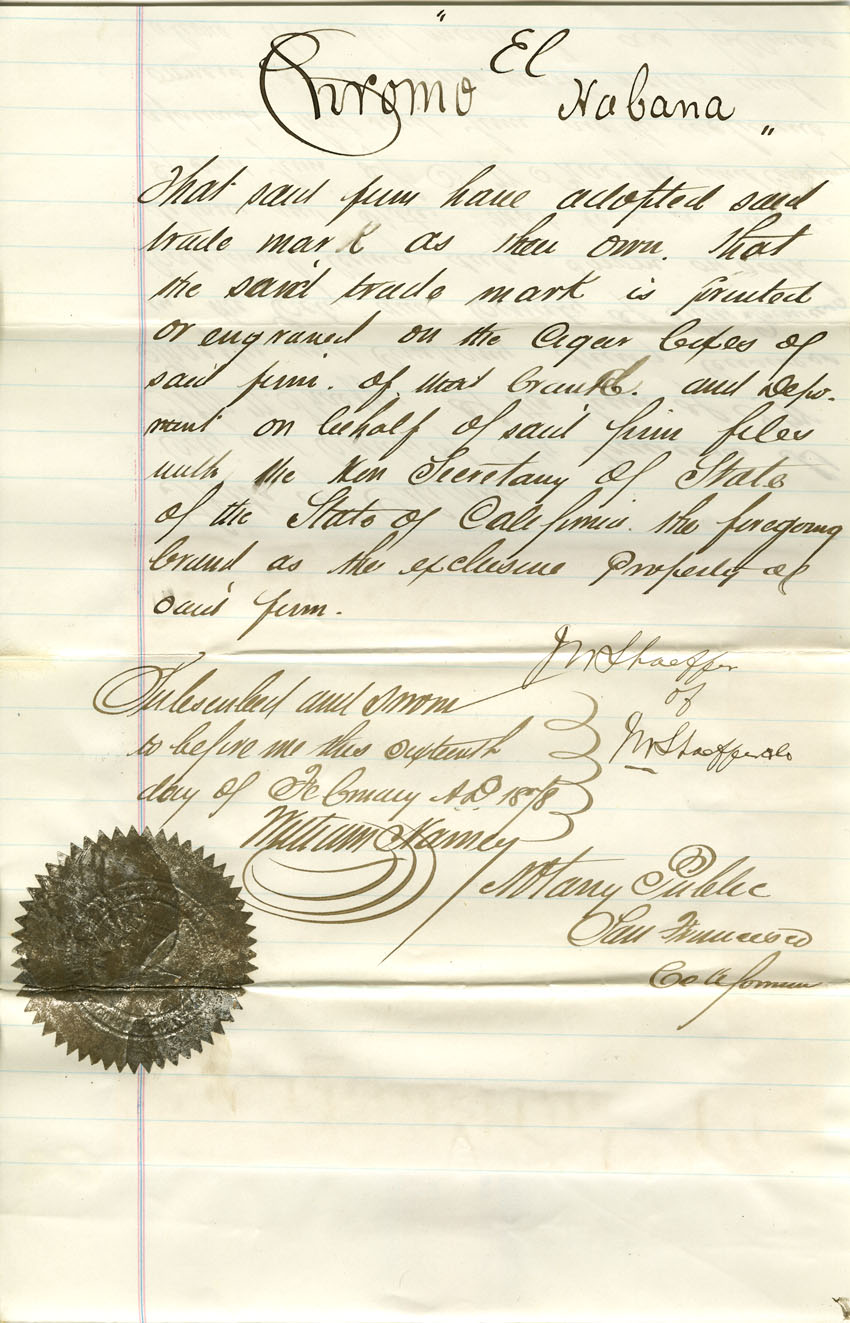 "
El
Chromo Habana
"
That said firm have adopted said
trade mark as their own. That
the said trade mark is printed
or engraved on the Cigar boxes of
said firm. of that brand. and Depo-
nent on behalf of said firm files
with the Hon Secretary of State
of the State of California. the foregoing
brand as the exclusive Property of
said firm.
J W Shaeffer
of
J W Shaeffer & Co
Subscribed and sworn
to before me this sixteenth
day of February A.D. 1878
William Harney
Notary Public
San Francisco
California